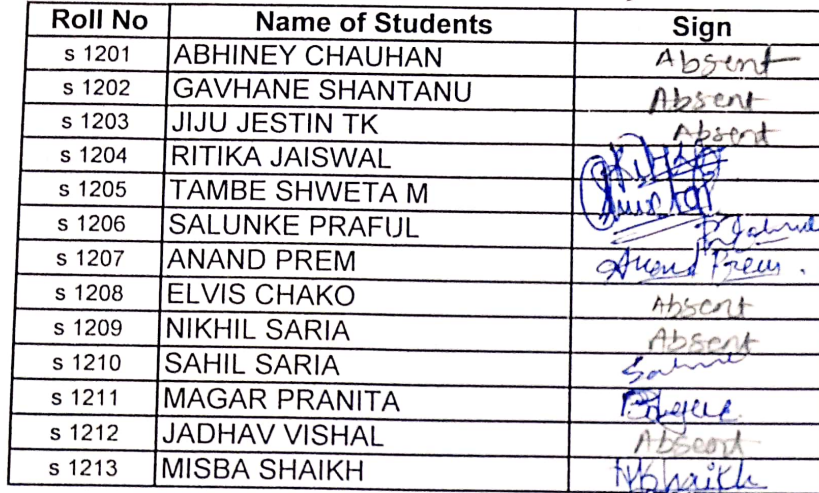 Roll No Name of Students Sign
s 1201 ABHINEY CHAUHAN Absent
s 1202 GAVHANE SHANTANU Absent
s 1203 JIJU JESTIN TK Absent
s 1204 RITIKA JAISWAL
s 1205 TAMBE SHWETA M
s 1206 SALUNKE PRAFUL
s 1207 ANAND PREM Anand Prem.
s 1208 ELVIS CHAKO Absent
s 1209 NIKHIL SARIA Absent
s 1210 SAHIL SARIA
s 1211 MAGAR PRANITA
s 1212 JADHAV VISHAL Absent
s 1213 MISBA SHAIKH